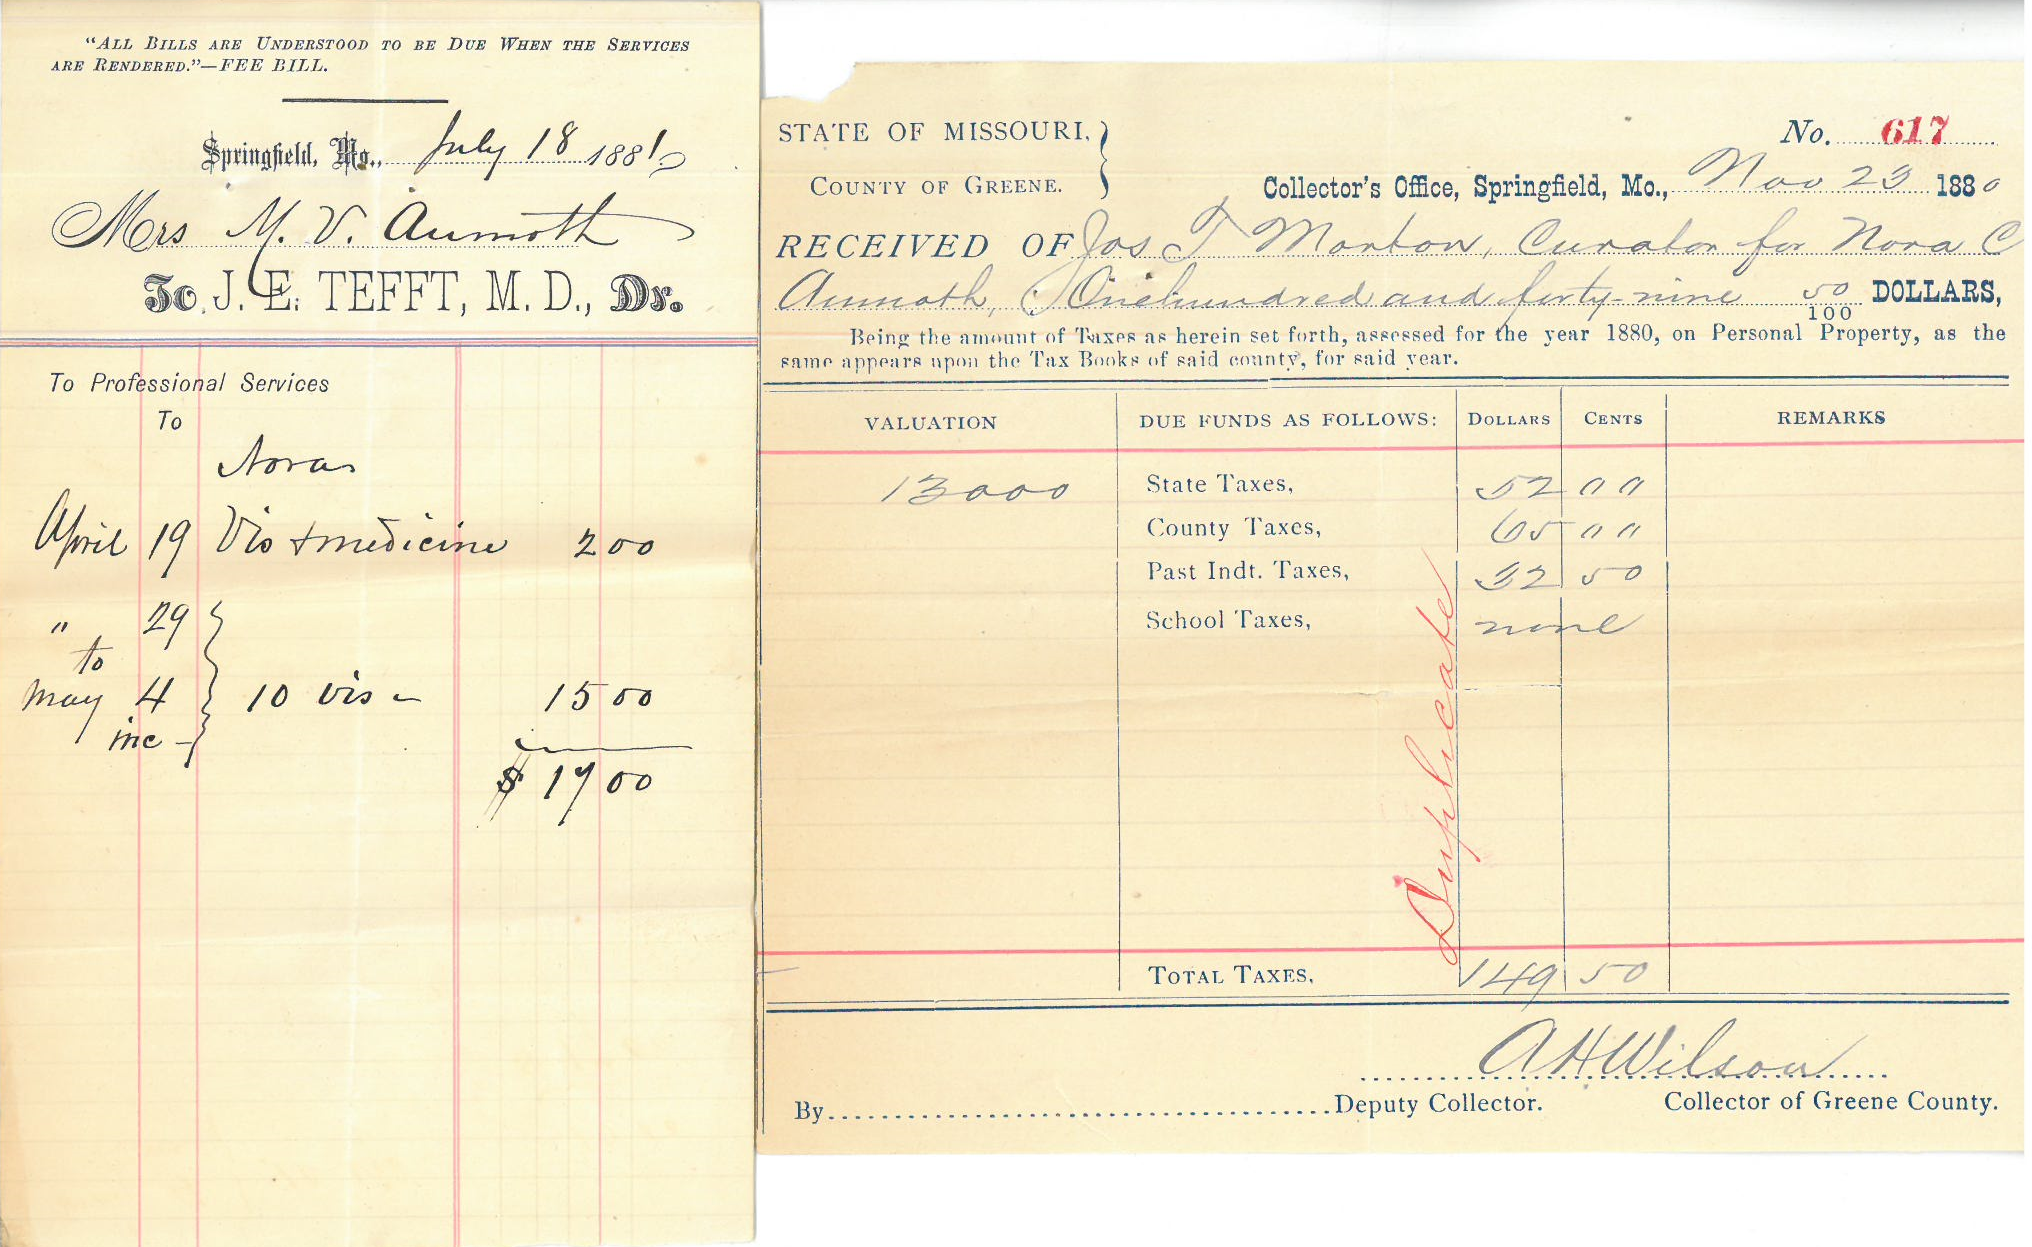 "ALL BILLS ARE UNDERSTOOD TO BE DUE WHEN THE SERVICES
ARE RENDERED."—FEE BILL.
Springfield, Mo., July 18 1881
Mrs M. V. Aumoth
To J. E. TEFFT, M. D., Dr.
To Professional Services
To
Nora
April 19 Vis + medicine 2 00
" 29
to
May 4 10 vis 15 00
inc
$ 17 00
No. 617
STATE OF MISSOURI,
COUNTY OF GREENE.
Collector's Office, Springfield, Mo., Nov 23 1880
RECEIVED OF Jos T Morton, Curator for Nora C
Aumoth, One hundred and forty-nine 50/100 DOLLARS,
Being the amount of Taxes as herein set forth, assessed for the year 1880, on Personal Property, as the
same appears upon the Tax Books of said county, for said year.
VALUATION DUE FUNDS AS FOLLOWS: DOLLARS CENTS REMARKS
13000 State Taxes, 52 00
County Taxes, 65 00
Past Indt. Taxes, 32 50
School Taxes, none
Duplicate
TOTAL TAXES, 149 50
A H Wilson
By Deputy Collector. Collector of Greene County.